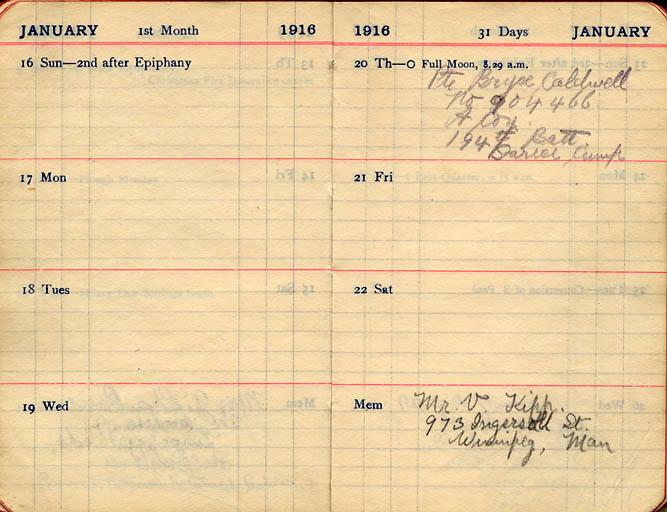 JANUARY 1st Month 1916
16 Sun—2nd after Epiphany
17 Mon
18 Tues
19 Wed
1916 31 Days JANUARY
20 Th—O Full Moon, 8.29 a.m.
Pte Bryce Caldwell
No 904466
A Coy
194th Batt.
Camp
21 Fri
22 Sat
Mem
Mr. V. Kipp.
973 Ingersoll St.
Winnipeg, Man